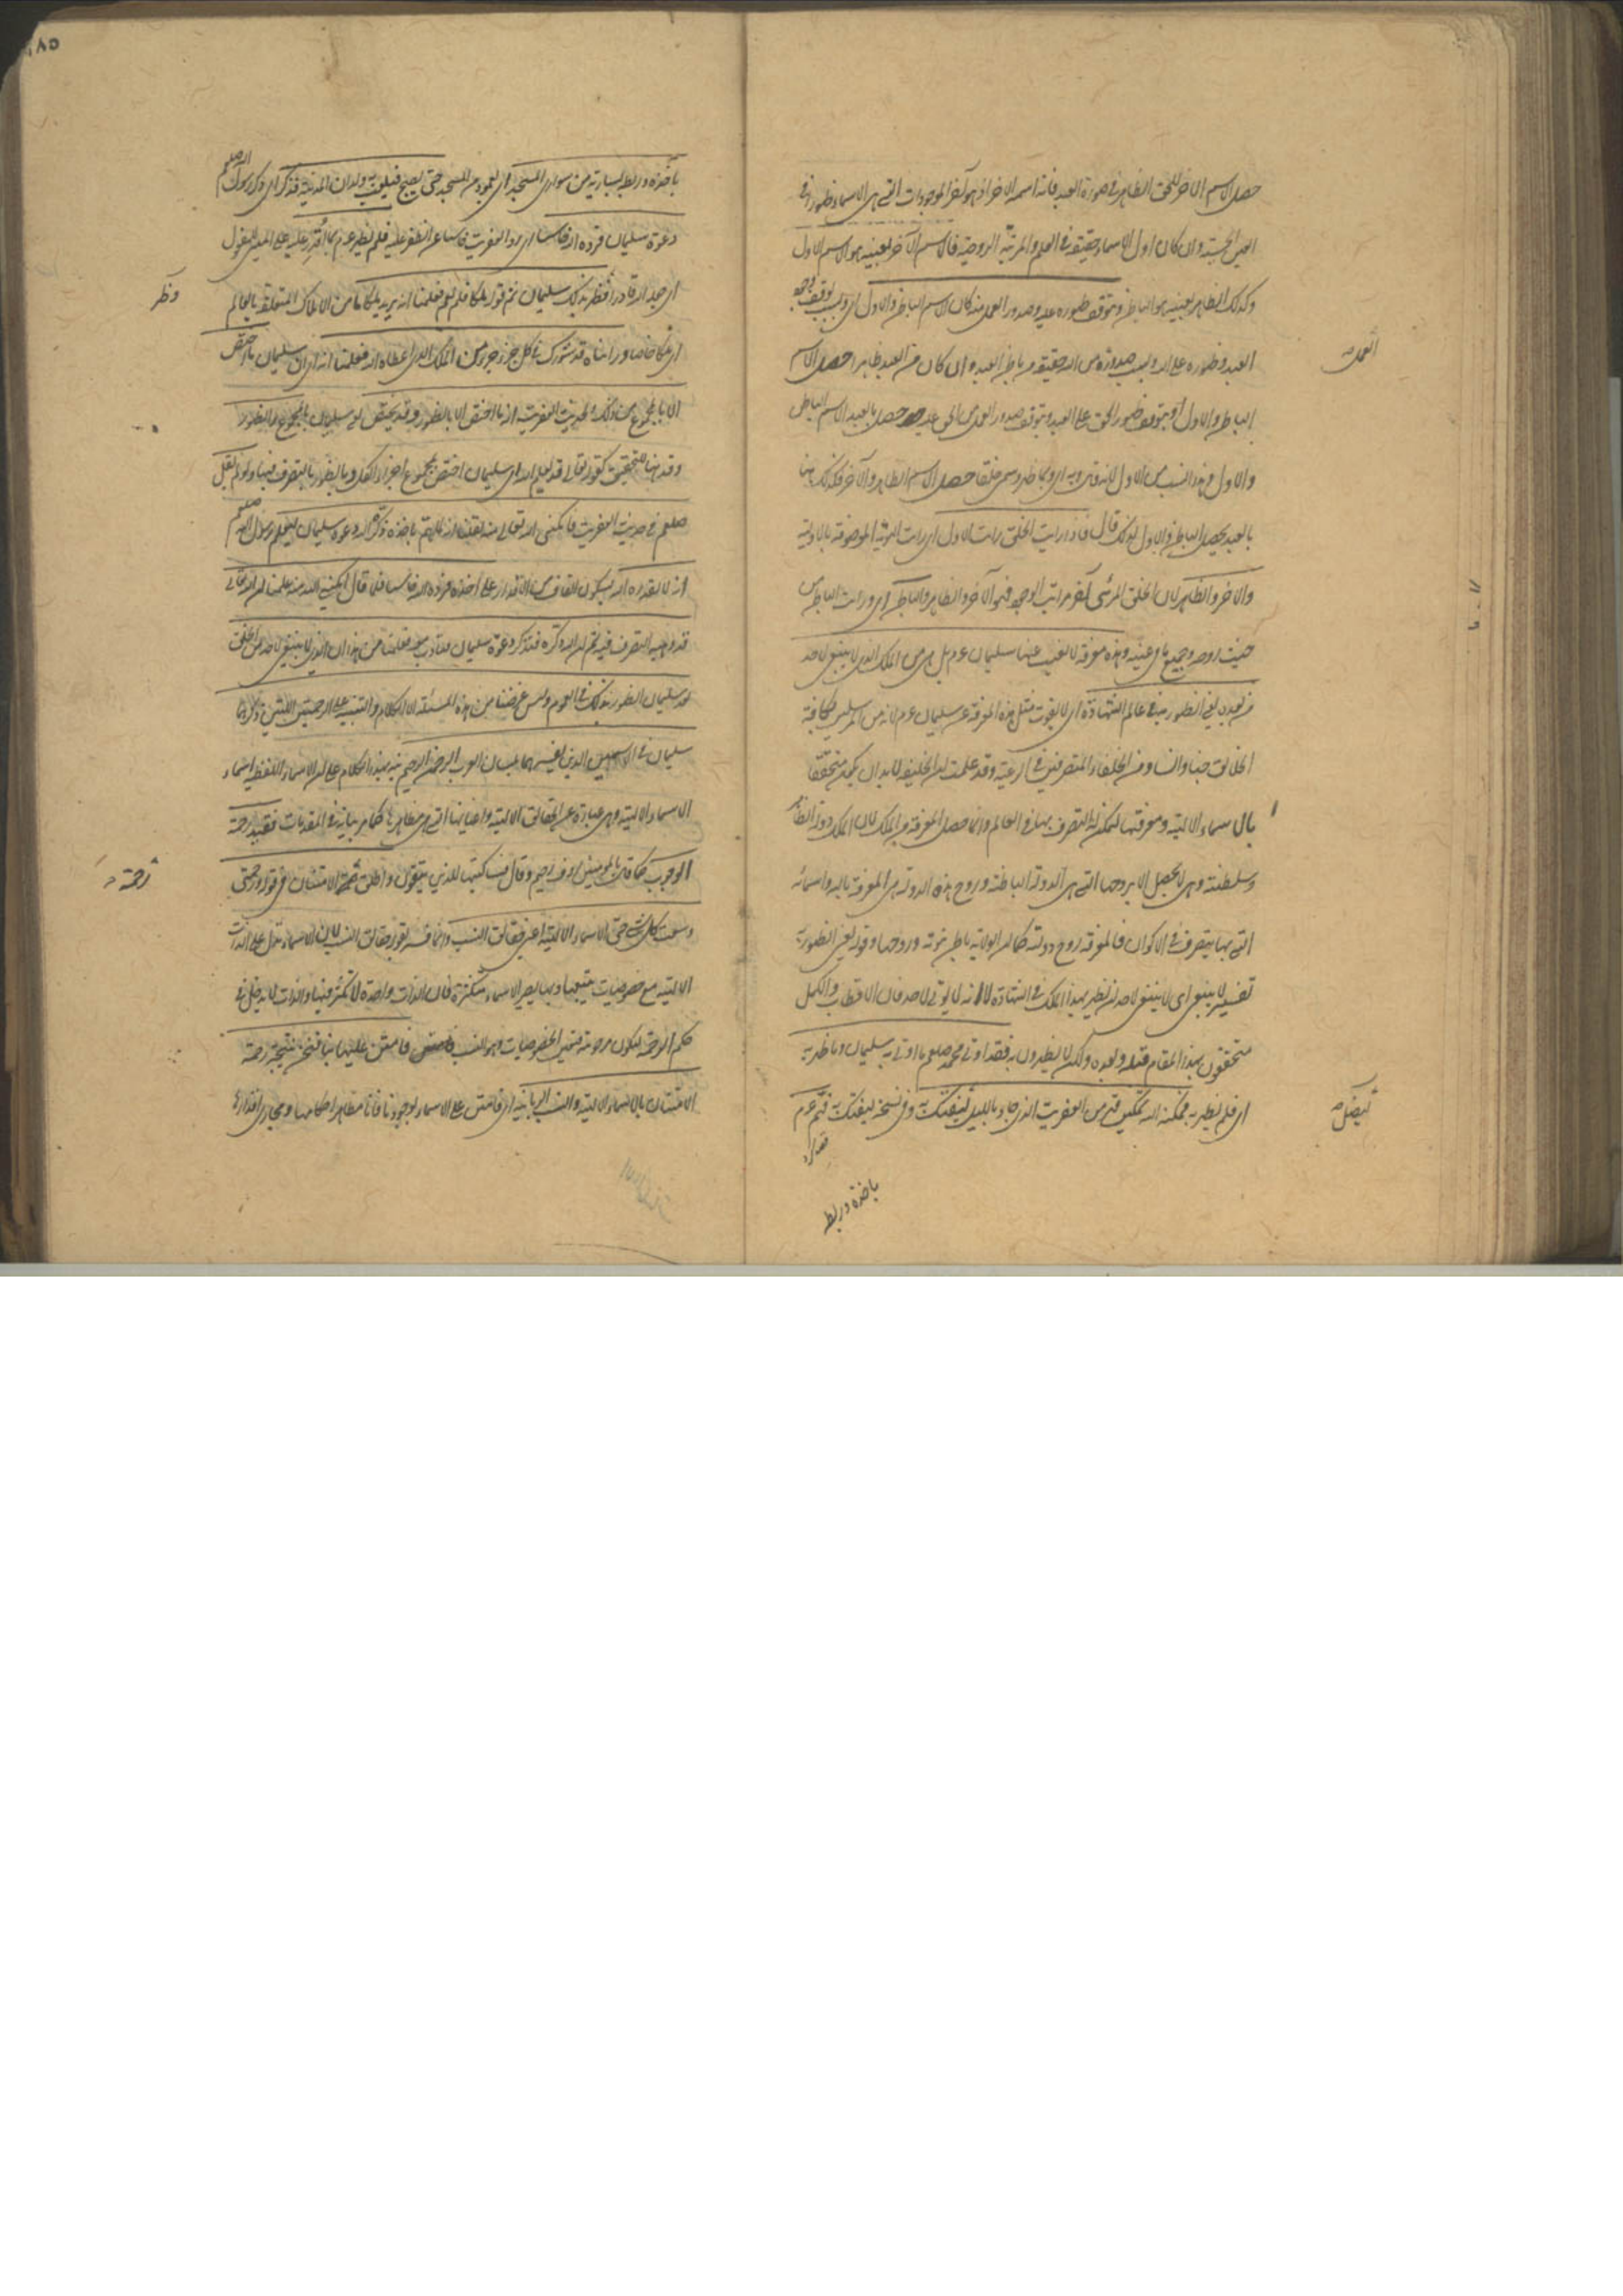 حصل الاسم الاخر للحق الظاهر في صورة العبد فانه اسمه الاخر اذ هو آخر الموجودات التي هي الاسماء وظهورها في
الحسية وان كان اول الاسماء حقيقة في العلم والمرتبة الروحية فالاسم الآخر بعينه هو الاسم الاول
وكذلك الظاهر بعينه هو الباطن وبتوقف ظهوره عليه وصدور العمل منه كان الاسم الباطن والاول اي وبسبب توقف وجود
العبد وظهوره على الله وبسبب صدوره من الله حقيقة من باطن العبد وان كان من العبد ظاهرا حصل الاسم
الباطن والاول او بتوقف ظهور الحق على العبد وبتوقف صدور العمل من الحق عليه حصل بالعبد الاسم الباطن
والاول وهذا انسب من الاول لانه قال وبه اي وبما ظهر وسمي خلقا حصل الاسم الظاهر والآخر فكذلك هنا
بالعبد يحصل الباطن والاول لذلك قال فاذا رايت الخلق رايت الاول اي رايت الهوية الموصوفة بالاولية
والاخر والظاهر لان الخلق المرئي آخر مراتب الوجود فهو الآخر والظاهر والباطن اي ورايت الباطن من
حيث روحه وجميع ما في غيبه وهذه معرفة لا يغيب عنها سليمان عم بل هي من الملك الذي لا ينبغي لاحد
من بعده يعني الظهور به في عالم الشهادة اي لا يفوت مثل هذه المعرفة عن سليمان عم لانه من المرسلين لكافة
الخلائق جنا وانسا ومن الخلفاء المتصرفين في الرعية وقد علمت ان الخليفة لا بد ان يكون متحققا
بالاسماء الالهية ومعرفتها ليمكن له التصرف بها في العالم وانما حصل المعرفة من الملك لان الملك دولة الظاهر
وسلطنته وهي لا تحصل الا بروحها التي هي الدولة الباطنة وروح هذه الدولة هي المعرفة بالله واسمائه
التي بها يتصرف في الاكوان فالمعرفة روح دولته كما ان الولاية باطن نبوته وروحها وقوله يعني الظهور به
تفسير لا ينبغي اي لا ينبغي لاحد ان يظهر بهذا الملك في الشهادة لا انه لا يوتى لاحد فان الاقطاب والكمل
متحققون بهذا المقام قبله وبعده ولكن لا يظهرون به فقد اوتي محمد صلعم ما اوتي به سليمان وما ظهر به
اي فلم يظهر به فمكنه الله تمكين قهر من العفريت الذي جاءه بالليل ليفتك به وفي نسخة ليفتك به فهم عم
باخذه وربط
العمل صح
باخذه وربطه بسارية من سواري المسجد اي بعمود من المسجد حتى يصبح فيلعب به ولدان المدينة فذكر اي ذكر رسول الله صلعم
دعوة سليمان فرده الله خاسئا اي رد العفريت خاسئا عن الظفر عليه فلم يظهر عم بما اقدر عليه على المبني للمفعول
اي جعل الله قادرا وظهر بذلك سليمان ثم قوله ملكا فلم يعم فعلمنا انه يريد ملكا ما من الاملاك المتعلقة بالعالم
اي ملكا خاصا وراينا قد شورك في كل جزء جزء من الملك الذي اعطاه الله فعلمنا انه اي ان سليمان ما اختص
الا بالمجموع من ذلك وبحديث العفريت انه ما اختص الا بالظهور وقد يختص سليمان بالمجموع والظهور
صلعم في حديث العفريت فامكنني الله تعالى منه لقلنا انه لما هم باخذه ذكره الله دعوة سليمان ليعلم رسول الله صلعم
انه لا يقدره الله فيكون القاف من الاقدار على اخذه فرده الله خاسئا فلما قال امكنني الله منه علمنا ان الله تعالى
قد وهبه التصرف فيه ثم ان الله ذكره فتذكر دعوة سليمان فتادب معه فعلمنا من هذا ان الذي لا ينبغي لاحد من الخلق
بعد سليمان الظهور بذلك في العموم وليس غرضنا من هذه المسئلة الا الكلام والتنبيه على الرحمتين اللتين ذكرهما
سليمان في الاسمين الذين تفسيرهما بلسان العرب الرحمن الرحيم نبه بهذا الكلام على ان الاسماء اللفظية اسماء
الاسماء الالهية وهي عبارة عن الحقائق الالهية واعيانها التي هي مظاهرها كما مر بيانه في المقدمات فقيد رحمة
الوجوب كما قال بالمومنين رؤف رحيم وقال فسأكتبها للذين يتقون واطلق رحمة الامتنان في قوله ورحمتي
وسعت كل شيء حتى الاسماء الالهية اعني حقائق النسب وانما فسر بقوله حقائق النسب لان الاسماء تدل على الذات
الالهية مع خصوصيات تتبعها وبها يصير الاسماء متكثرة فان الذات واحدة لا تكثر فيها والذات لا يدخل في
حكم الرحمة ليكون مرحومة فتعين الخصوصيات وهو النسب فامتن عليها بنا فنحن نتيجة رحمة
الامتنان بالاسماء الالهية والنسب الربانية اي فامتن على الاسماء بوجودنا فانا مظاهر احكامها ومجاري اقدارها
وظهر
رحمة